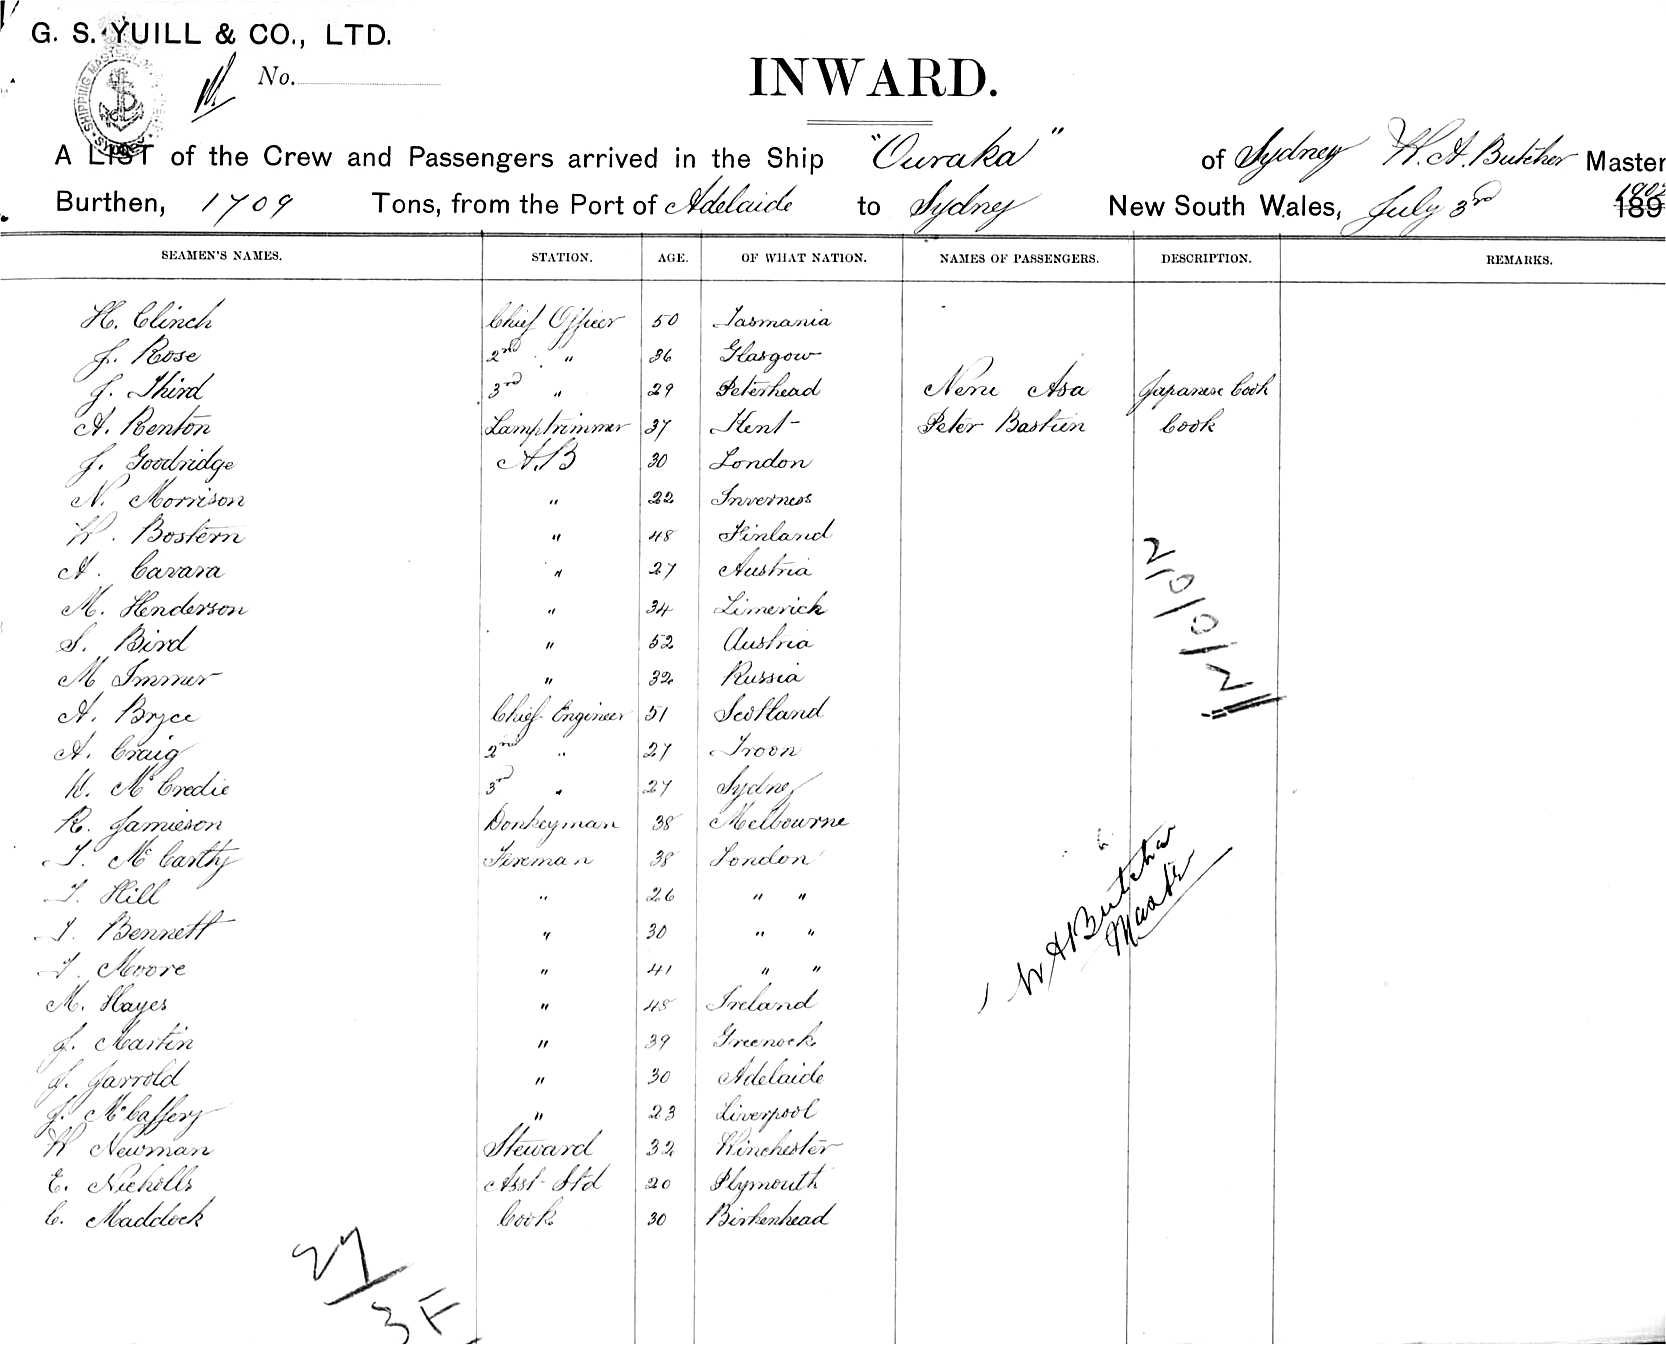 G. S. YUILL & CO., LTD.
No.
INWARD.
A LIST of the Crew and Passengers arrived in the Ship "Ouraka" of Sydney W. A. Butcher Master
Burthen, 1709 Tons, from the Port of Adelaide to Sydney New South Wales, July 3rd 189 1902
SEAMEN'S NAMES. STATION. AGE. OF WHAT NATION. NAMES OF PASSENGERS. DESCRIPTION. REMARKS.
H. Clinch Chief Officer 50 Tasmania
J. Rose 2nd " 36 Glasgow
J. Third 3rd " 29 Peterhead Nene Asa Japanese Cook
A. Renton Lamptrimmer 37 Kent Peter Bastien Cook
J. Goodridge A.B 30 London
N. Morrison " 22 Inverness
W. Bostern " 48 Finland
A. Cavara " 27 Austria
M. Henderson " 34 Limerick
S. Bird " 52 Austria
M Immer " 32 Russia
A. Bryce Chief Engineer 51 Scotland
A. Craig 2nd " 27 Troon
H. McCredie 3rd " 27 Sydney
R. Jamieson Donkeyman 38 Melbourne
T. McCarthy Fireman 38 London
T. Hill " 26 " "
T. Bennett " 30 " "
T. Moore " 41 " "
M. Hayes " 48 Ireland
J. Martin " 39 Greenock
J. Jarrold " 30 Adelaide
J. McCaffery " 23 Liverpool
W Newman Steward 32 Winchester
E. Nicholls Asst Std 20 Plymouth
C. Maddock Cook 30 Birkenhead
2/0/0/2
W A Butcher
Master
27
3F